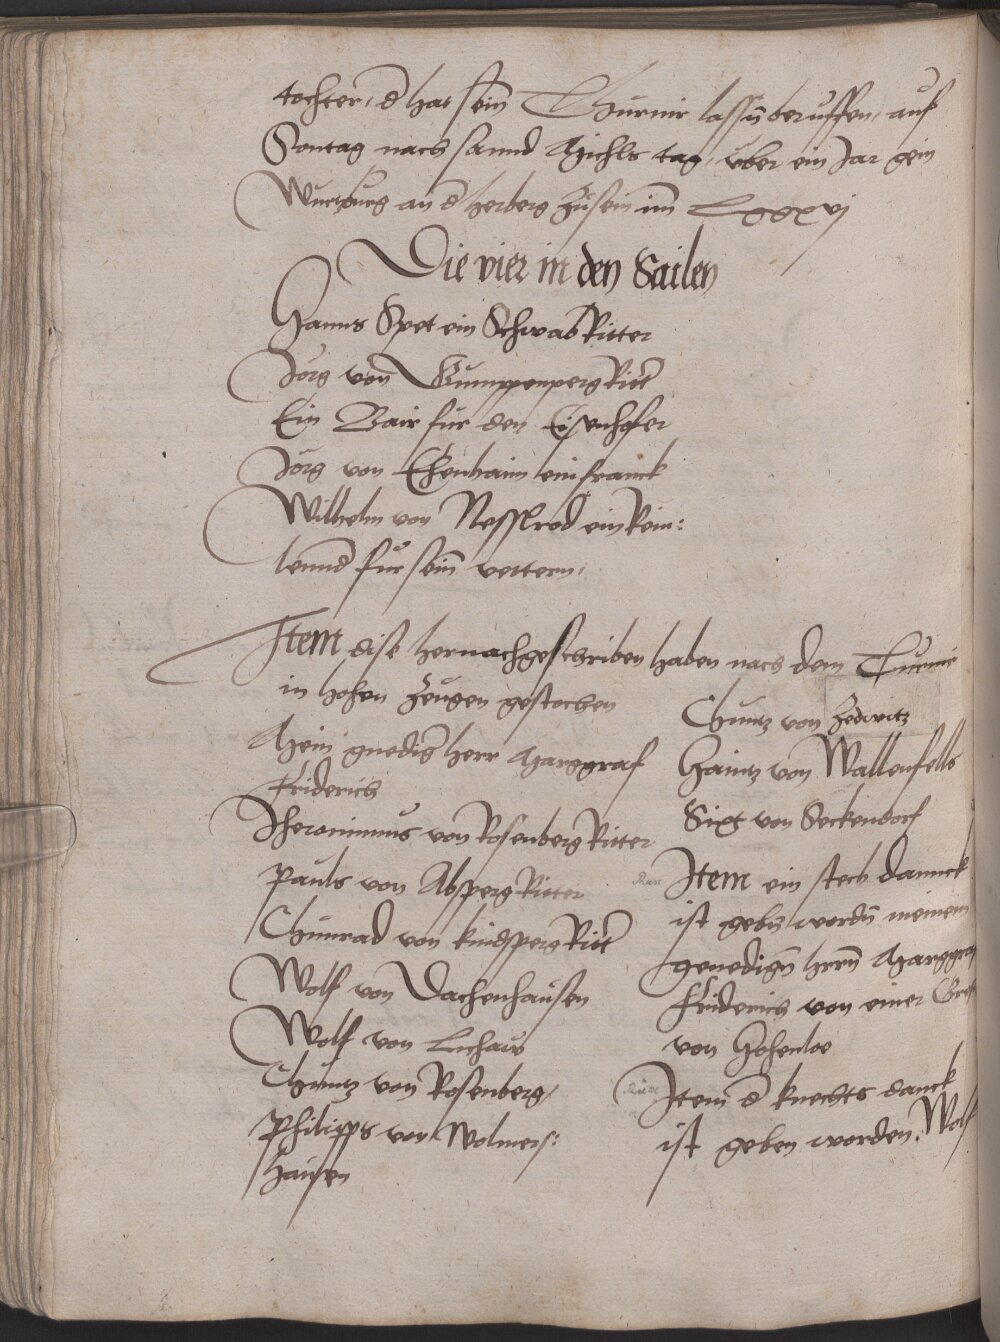 tochter, d hat sein Thurnir lassn beruffen, auf
Sontag nach sannd Michls tag, uber ein Jar gein
Wurtzburg an d herberg zu sein im Lxxxvj
Die vier in den Sailen
Hanns Spet ein Schwab Ritter
Jorg von Gumppenperg Ritt
Ein Bair fur den Eisenhofer
Jorg von Ehenhaim ein franck
Wilhelm von Nesslrod ein Rein:
lennd fur sein vettern,
Item dise hernachgeschriben haben nach dem Turnir
in hohen Zeugen gestochen
Mein gnedig herr Marggraf
Friderich
Jheronimus von Rosenberg Ritter
Pauls von Absperg Ritter
Chunrad von kindsperg Ritt
Wolf von Dachenhausen
Wolf von
Chuntz von Rosenberg,
Philipps von Wolmers:
hausen
Chuntz von Zedwitz
Haintz von Wallenfells
Sixt von Seckendorf
Item ein stech dannck
ist gebn wordn meinem
genedign hrrn Marggraf
Friderich von einer
von Hohenloe
Item d knechts danck
ist geben worden, Wolf